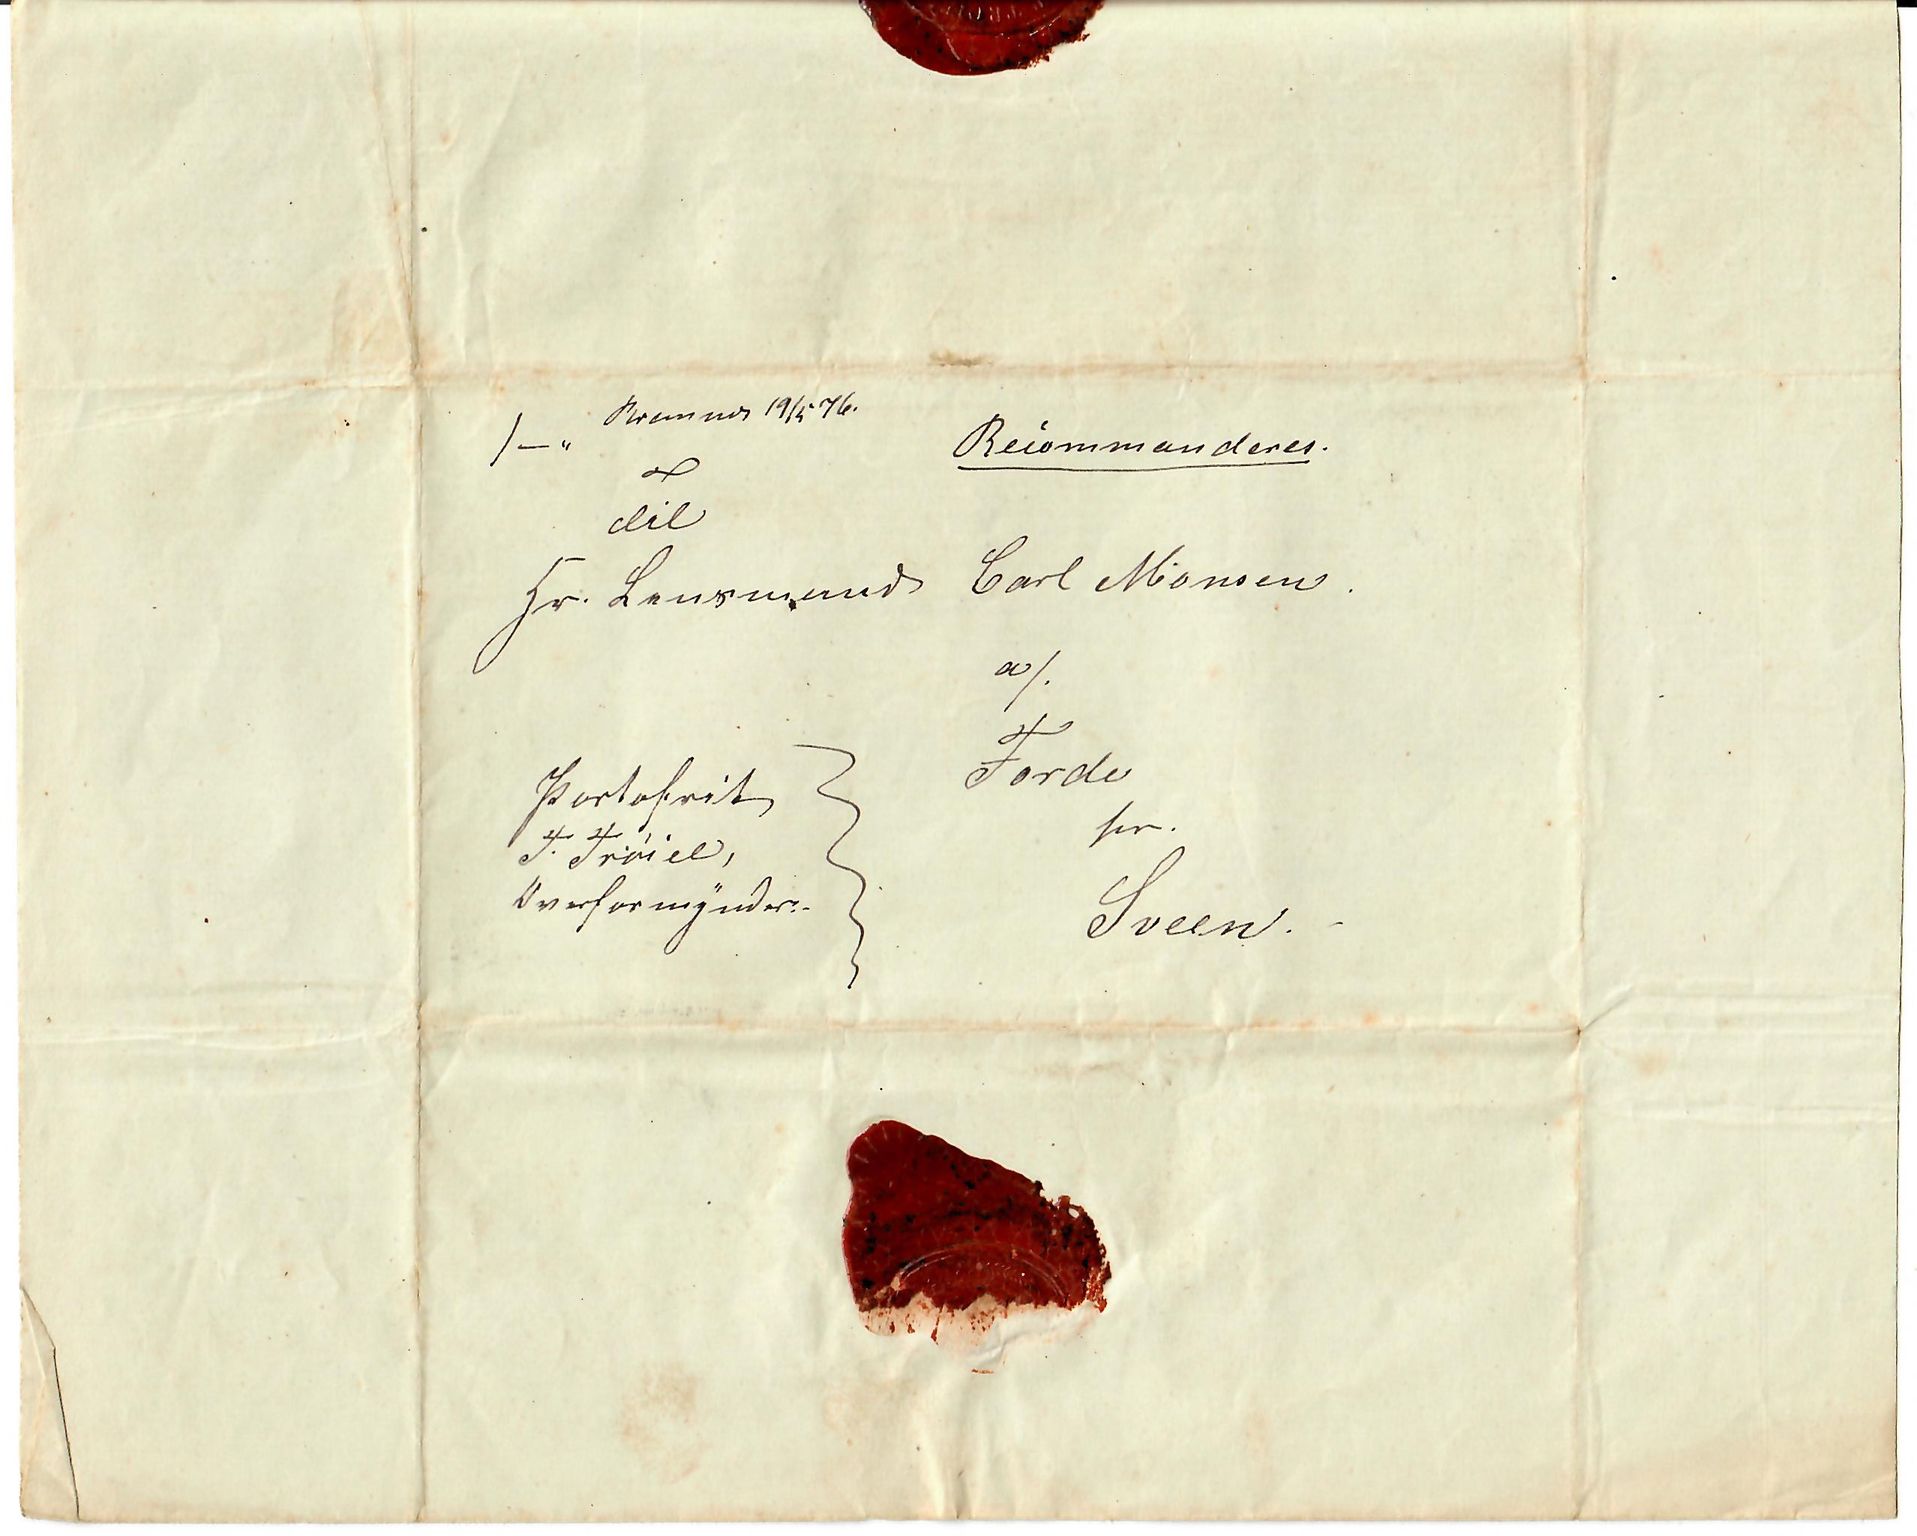 19/5 76.
/—„
Recommanderes.
Til
Hr. Lensmand Carl Monsen.
a/.
Førde
pr.
Sveen.
Portofrit
F. Trøiel,
Overformynder.